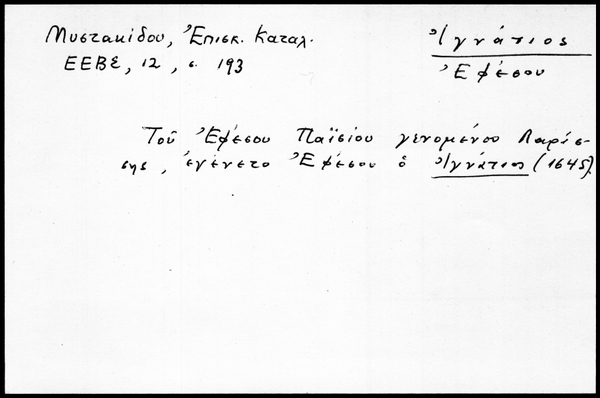 Μυστακίδου, Ἐπισκ. Καταλ.
ΕΕΒΣ, 12, σ. 193
Ἰγνάτιος
Ἐφέσου
Τοῦ Ἐφέσου Παϊσίου γενομένου Λαρίσ-
σης, ἐγένετο Ἐφέσου ὁ Ἰγνάτιος (1645).